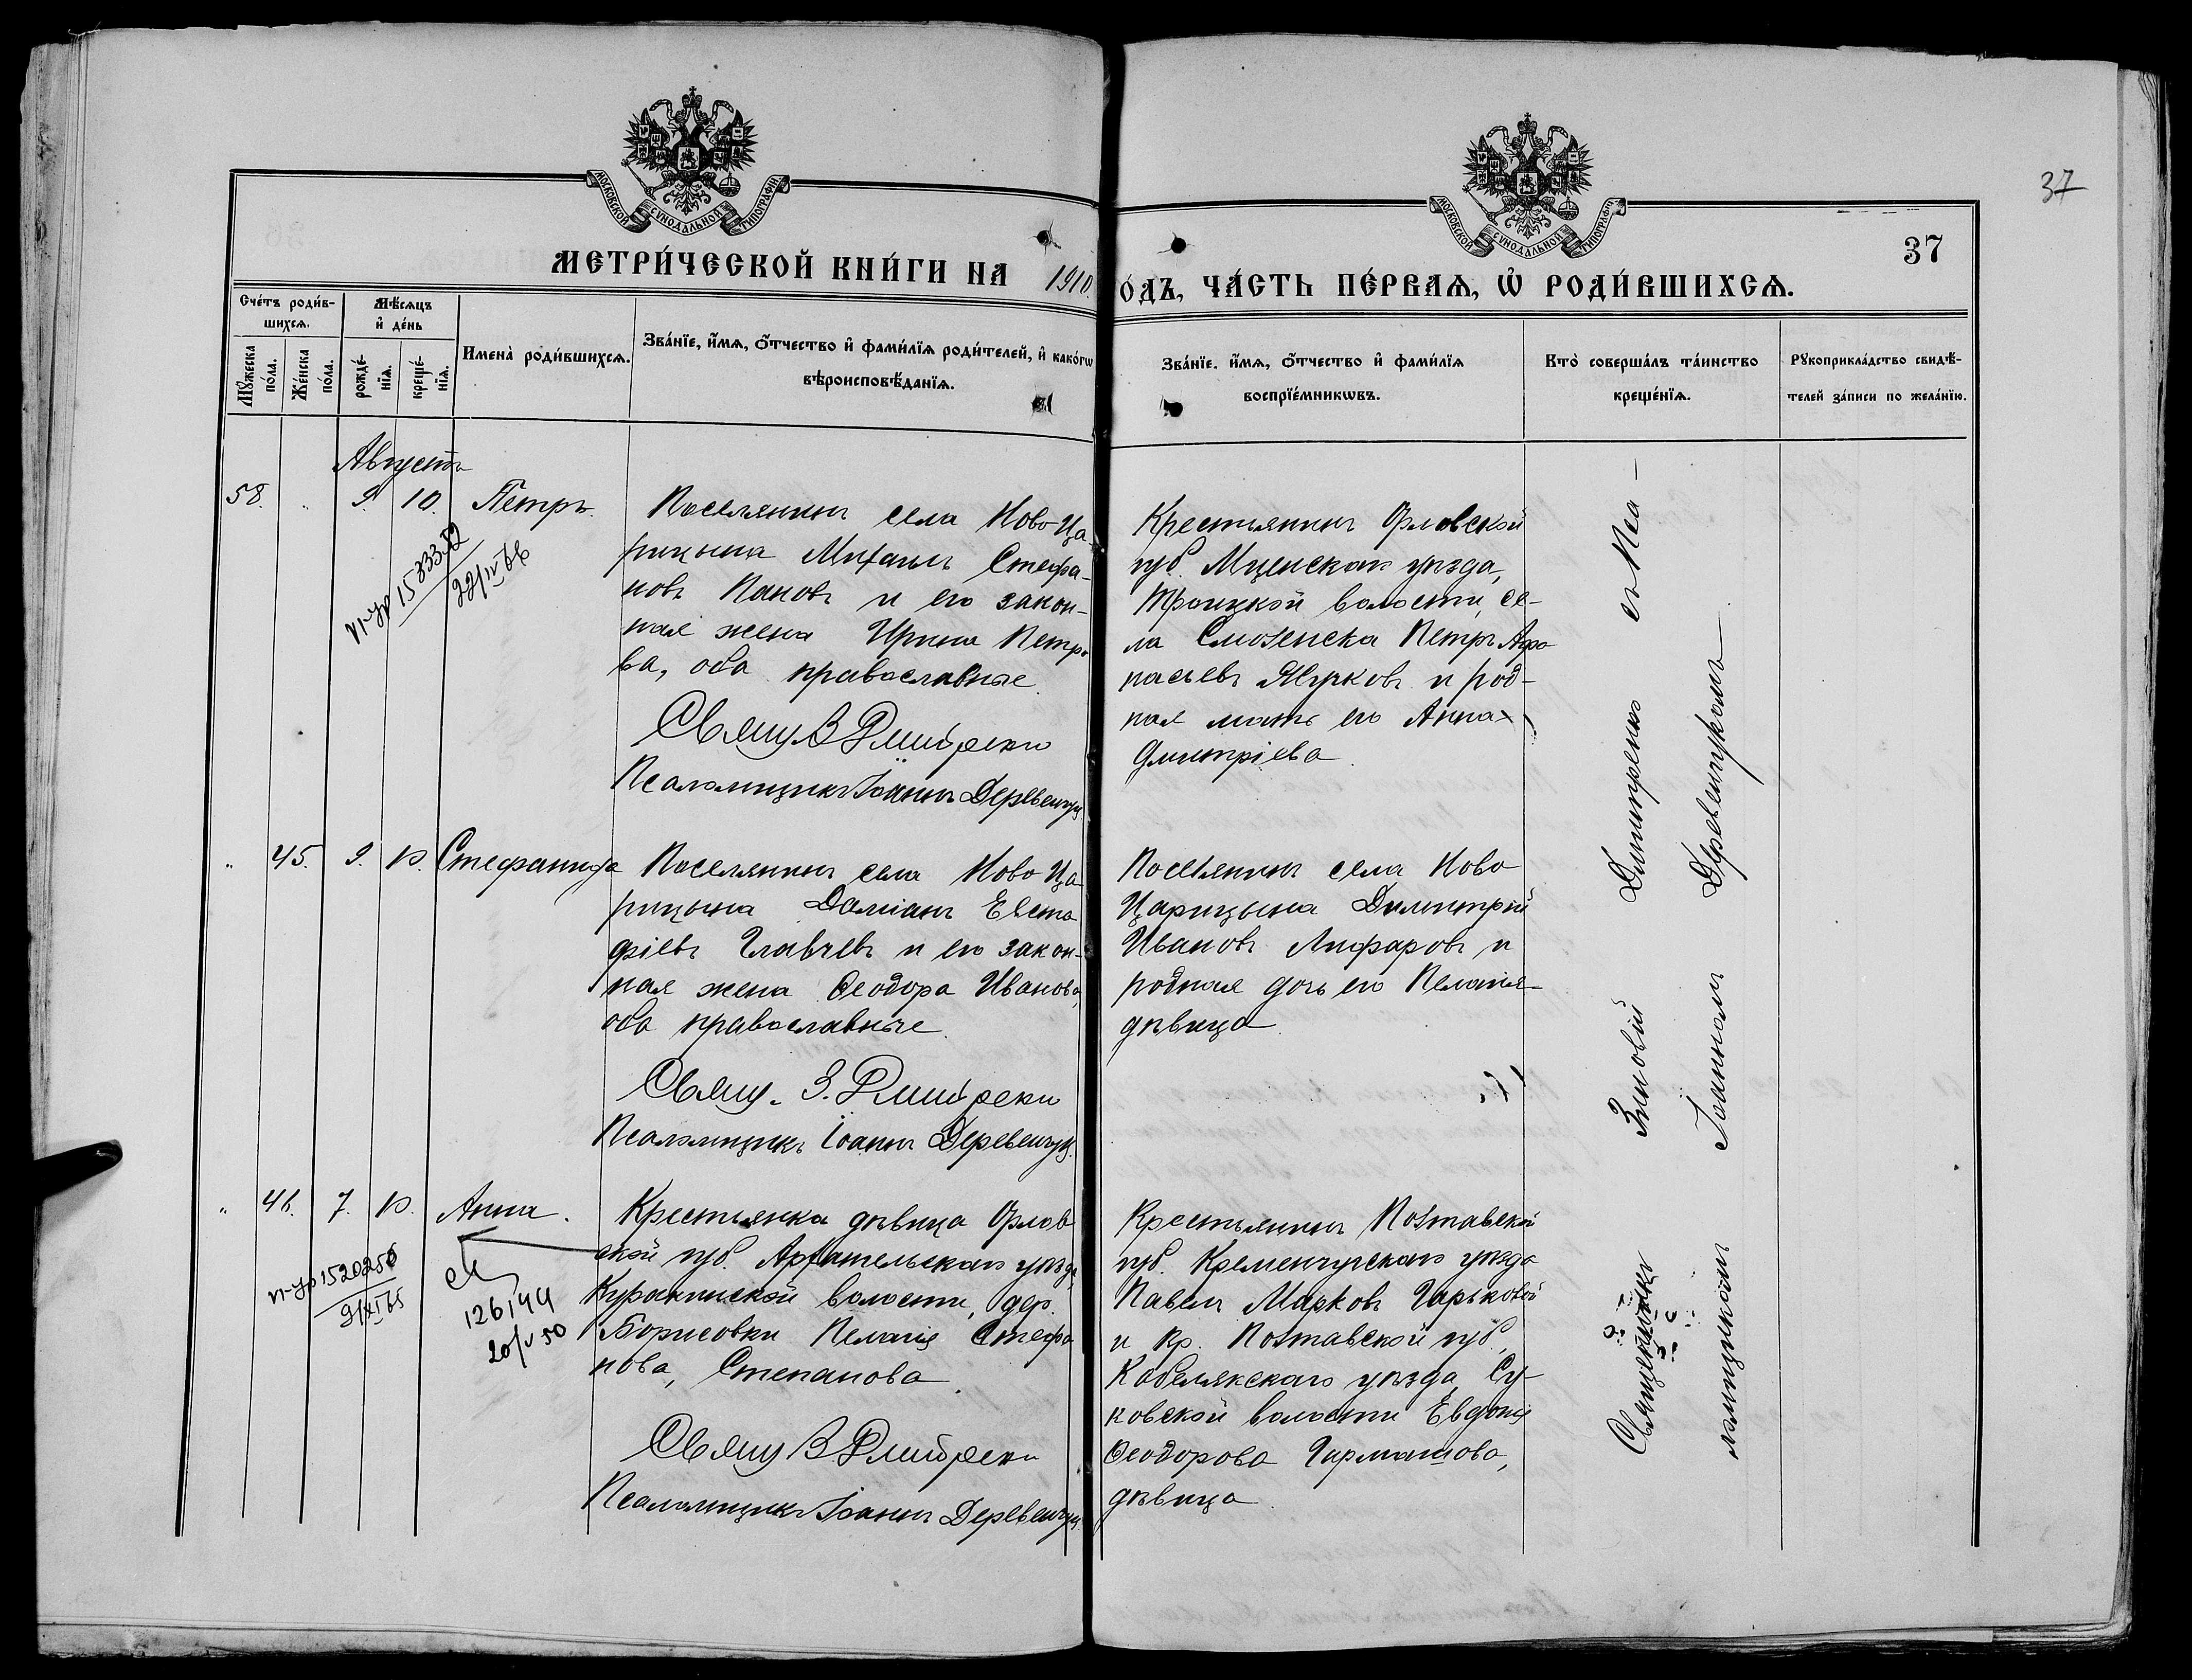 37
МОСКОВСКОЙ СѴНОДАЛЬНОЙ ТИПОГРАФІИ
МОСКОВСКОЙ СѴНОДАЛЬНОЙ ТИПОГРАФІИ
37
МЕТРИ́ЧЕСКОЙ КНИ́ГИ НА 1910 О́ДЪ, ЧА́СТЬ ПЕ́РВАѦ, Ѡ҆ РОДИ́ВШИХСѦ.
Сче́тъ роди́в-
шихсѧ.
Мѣ́сѧцъ
и҆ де́нь
Мꙋ́жеска
по́ла.
Же́нска
по́ла.
рожде́-
нїѧ.
креще́-
нїѧ.
Имена̀ роди́вшихсѧ.
Зва́нїе, и҆́мѧ, ѻ҆́тчество и҆ фами́лїѧ роди́телей, и҆ како́гѡ
вѣроисповѣ́данїѧ.
Зва́нїе, и҆́мѧ, ѻ҆́тчество и҆ фами́лїѧ
воспрїе́мникѡвъ.
Кто̀ соверша́лъ та́инство
креще́нїѧ.
Рꙋкоприкла́дство свидѣ́-
телей за́писи по жела́нїю.
Августъ
58. " 9. 10. Петръ.
Поселянинъ села Ново-Ца-
рицына Михаилъ Стефа-
новъ Пановъ и его закон-
ная жена Ирина Петро-
ва, оба православные.
Свящ. З Дмитренко
Псаломщикъ Іоаннъ Деревенчук
Крестьянинъ Орловской
губ. Мценскаго уѣзда,
Троицкой волости, се-
ла Петръ Афа-
насьевъ Жучковъ и род-
ная мать его Анна
Димитріева
22/IV 66
" 45. 9. 10. Стефанида
Поселянинъ села Ново Ца-
рицына Даміанъ Евста-
фіевъ Главчевъ и его закон-
ная жена Ѳеодора Иванова,
оба православные.
Свящ. З. Дмитренко
Псаломщикъ Іоаннъ Деревенчук.
Поселянинъ села Ново
Царицына Димитрій
Ивановъ Лифаровъ и
родная дочь его Пелагія-
дѣвица
" 46. 7. 10. Анна.
Крестьянка дѣвица Орлов-
ской губ. Архангельскаго уѣзда,
Куракинской волости, дер.
Борисовки Пелагія Стефа-
нова, Степанова.
Свящ З Дмитренко
Псаломщикъ Іоаннъ Деревенчук.
Крестьянинъ Полтавской
губ. Кременчугскаго уѣзда
Павелъ Марковъ Гарьковой
и кр. Полтавской губ.,
Кобелякскаго уѣзда, Су-
ковской волости Евдокія
Ѳеодорова Гармашова,
дѣвица.
126144
20/V 50
Священникъ Зиновій Димитренко съ Пса-
ломщикомъ Іоанномъ Деревенчукомъ